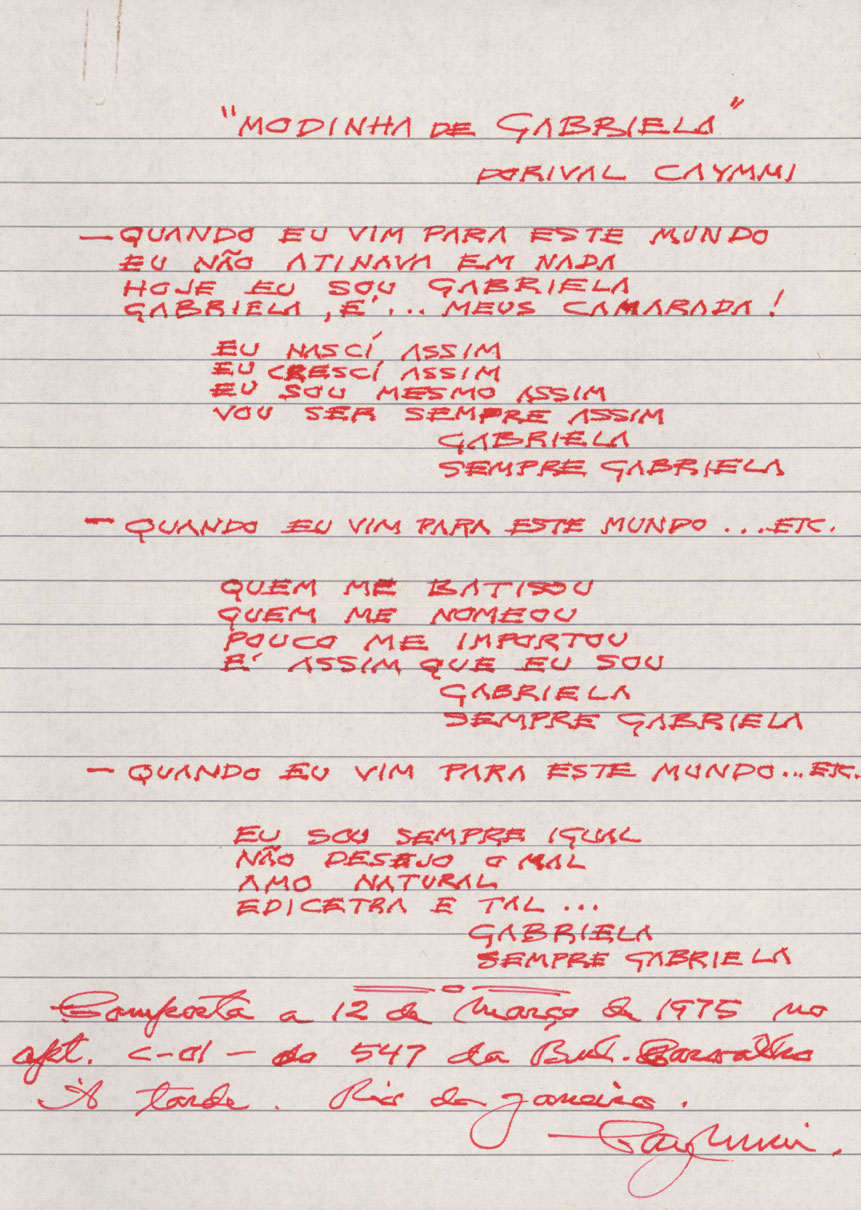 "MODINHA DE GABRIELA"
DORIVAL CAYMMI
— QUANDO EU VIM PARA ESTE MUNDO
EU NÃO ATINAVA EM NADA
HOJE EU SOU GABRIELA
GABRIELA, E'... MEUS CAMARADA!
EU NASCÍ ASSIM
EU CRESCÍ ASSIM
EU SOU MESMO ASSIM
VOU SER SEMPRE ASSIM
GABRIELA
SEMPRE GABRIELA
— QUANDO EU VIM PARA ESTE MUNDO ... ETC.
QUEM ME BATISOU
QUEM ME NOMEOU
POUCO ME IMPORTOU
E' ASSIM QUE EU SOU
GABRIELA
SEMPRE GABRIELA
— QUANDO EU VIM PARA ESTE MUNDO... ETC.
EU SOU SEMPRE IGUAL
NÃO DESEJO O MAL
AMO NATURAL
EDICETRA E TAL ...
GABRIELA
SEMPRE GABRIELA
Composta a 12 de Março de 1975 no
apt. C-01 — do 547 da Carvalho
À tarde. Rio de janeiro.
Caymmi.